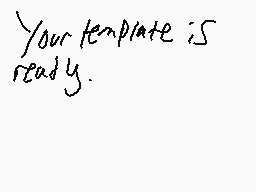 Your template is
ready.